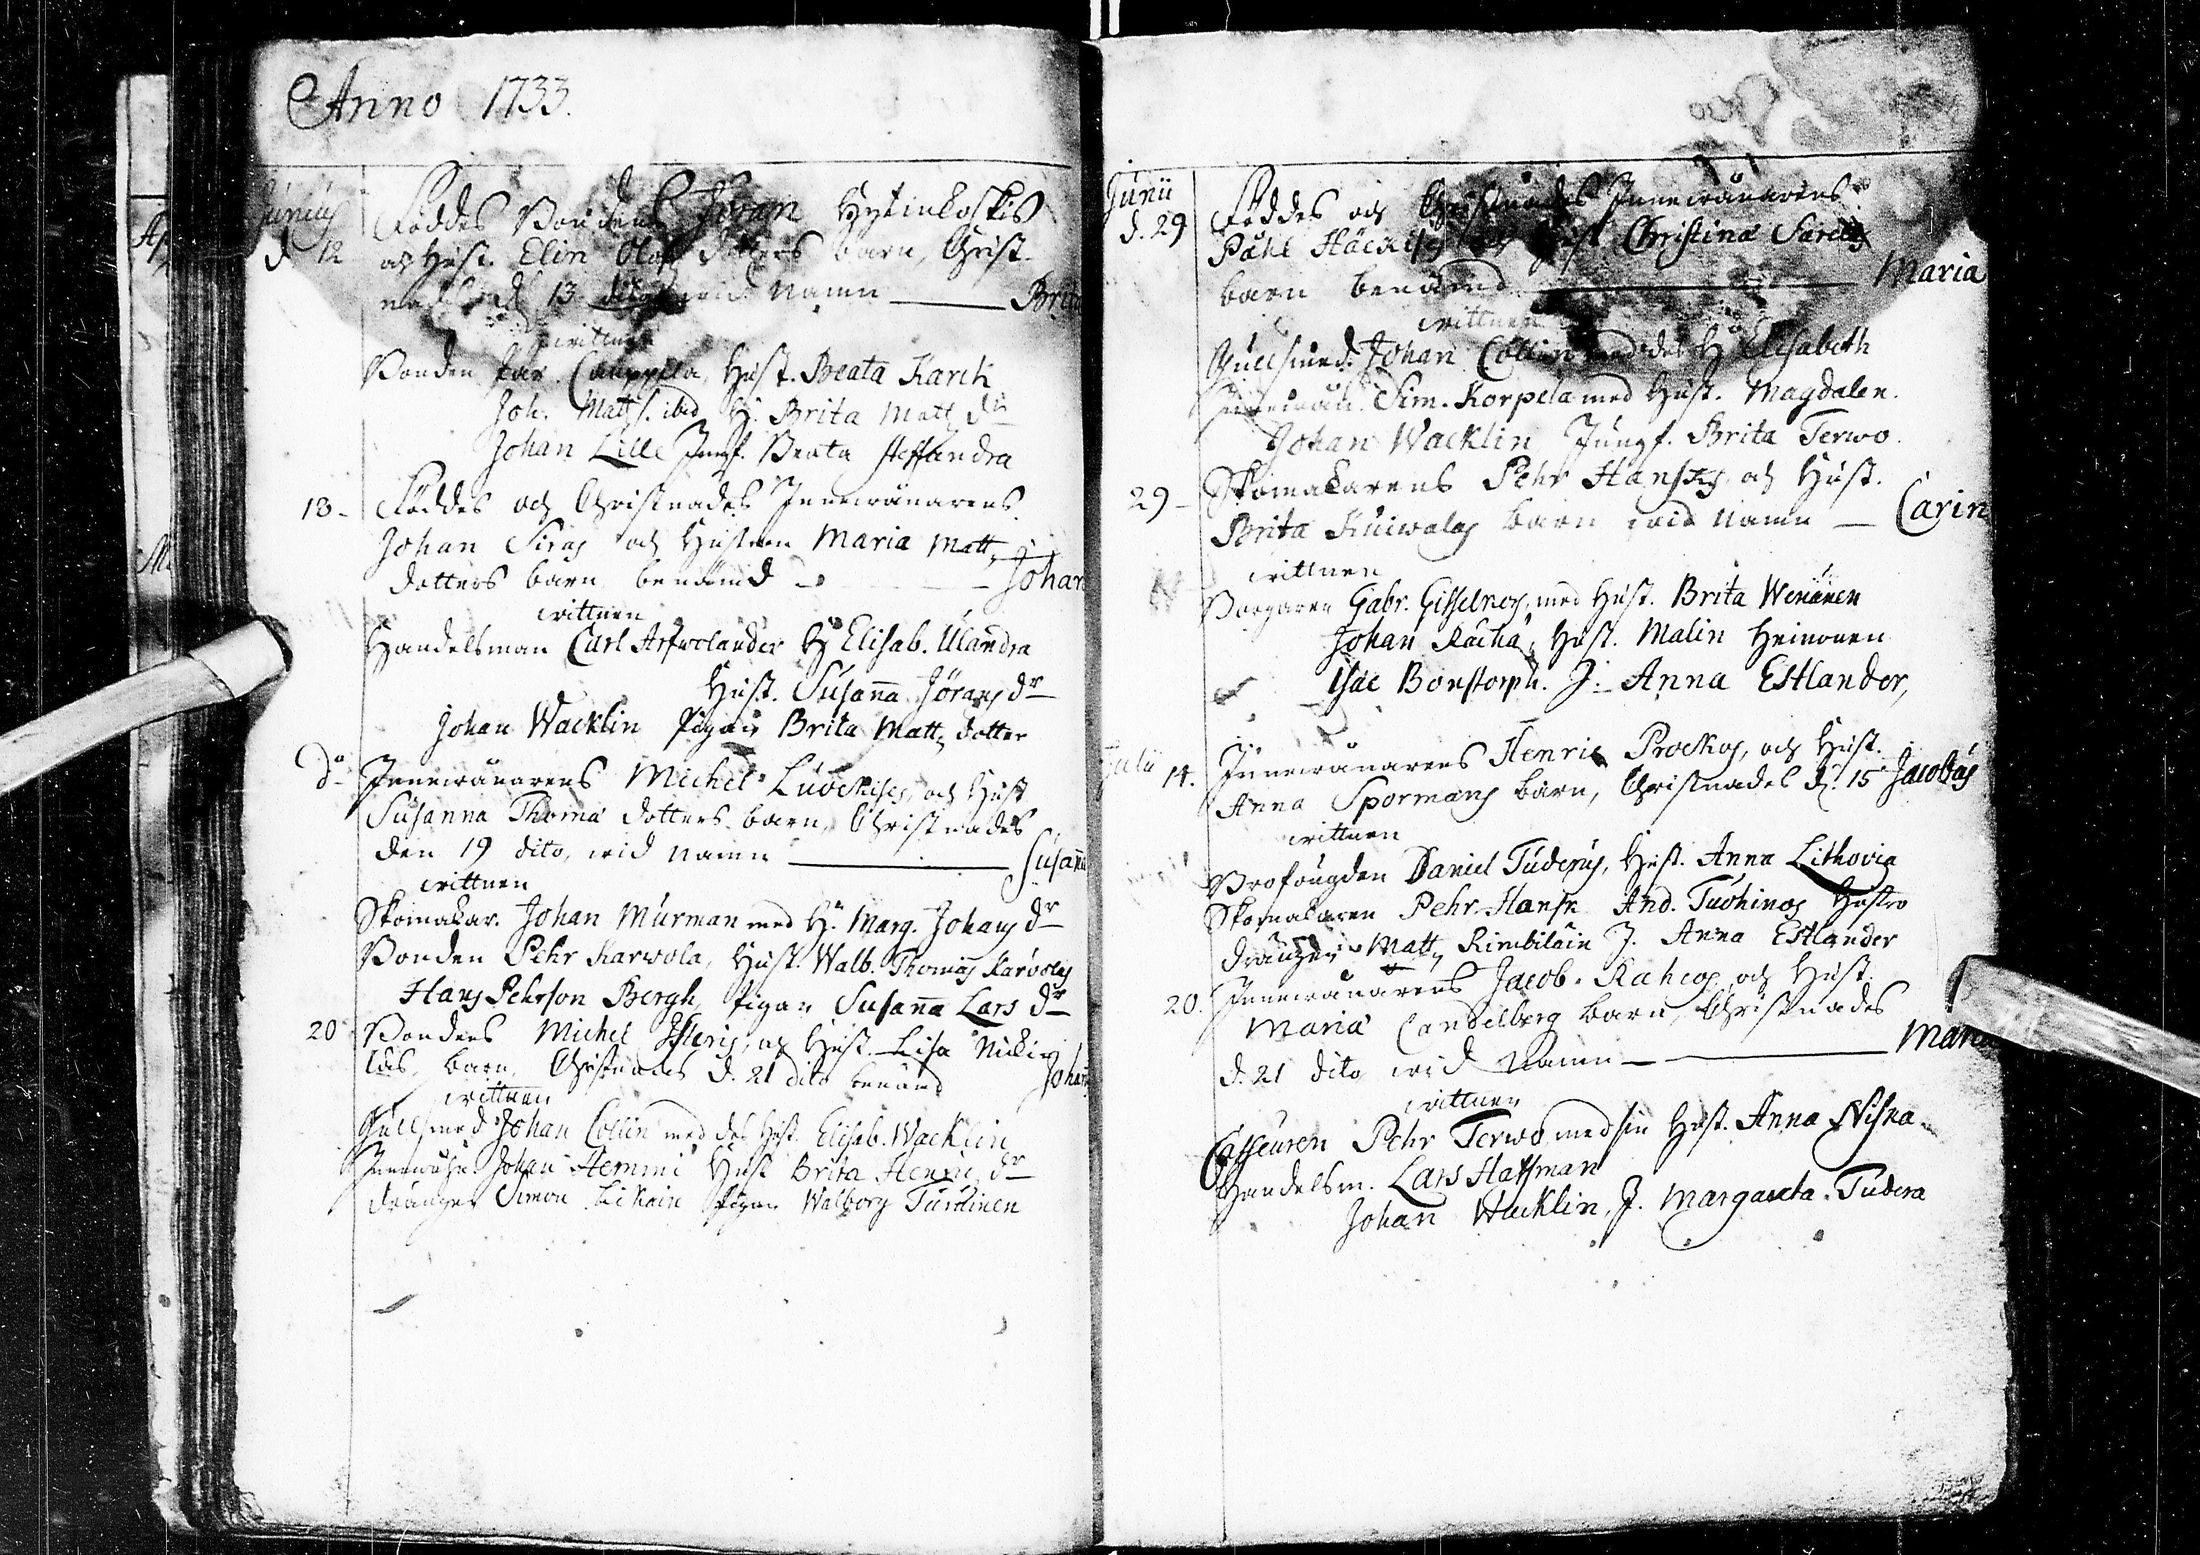 Anno 1733.
Junius
d. 12
Föddes Bondens Jöran Hytinkoskis
och Hust. Elin Olofz dotters barn, Christ-
nades d. 13 dito wid namn — Brita
wittnen
Bonden Pär Cauppila, Hust. Beata Karck
Joh. Matts. ibid. H. Brita Matts dr
Johan Lille Jungf. Beata Steffandra
13 - Föddes och Christnades Innewånarens
Johan Siras och Hustrun Maria Matts
dotters barn benämd — Johan
wittnen
Handelsman Carl Arfwolander H. Elisab. Ulandra
Hust. Susanna Jörans dr
Johan Wacklin Pigan Brita Matts dotter
do Innewånarens Michel och Hust
Susanna Thoma dotters barn, Christnades
den 19 dito, wid namn — Susanna
wittnen
Skomakar. Johan Murman med H. Marg. Johans dr
Bonden Pehr Karwola, Hust. Walb. Thomas
Hans Pehrson Bergh, Pigan Susanna Lars dr
20 Bondens Michel och Hust. Lisa
barn, Christnades d. 21 dito benämd Johan
wittnen
Gullsmed Johan Collin med des Hust. Elisab. Wacklin
Johan Hemmi Hust Brita Henric dr
drängen Simon Pigan Walborg
Junii
d. 29
Föddes och Christnades Innewånarens
Påhl och Hust Christina
barn benämd — Maria
wittnen
Gullsmed. Johan Collin med des H. Elisabeth
Innewån. Sim. Korpela med Hust. Magdalen.
Johan Wacklin Jungf. Brita Terwo.
29 - Skomakarens Pehr och Hust.
Brita Kuiwalas barn wid namn — Carin
wittnen
Borgaren Gabr. med Hust. Brita Wenänen
Johan Hust. Malin Heinonen
Isac Bonstorph. J. Anna Estlander,
Julii 14. Innewånarens Henric och Hust.
Anna Spormans barn, Christnades d. 15 Jacobus
wittnen
Profougden Daniel Tuderus, Hust. Anna Lithovia
Skomakaren Pehr Hans And. Hustro
drängen Matts Rimbiläin J. Anna Estlander
20. Innewånarens Jacob och Hust.
Maria Candelberg barn, Christnades
d. 21 dito wid namn — Maria
wittnen
Casseuren Pehr Terwo med sin Hust. Anna Niska
Handelsm. Lars
Johan Wacklin, J. Margareta Tudera